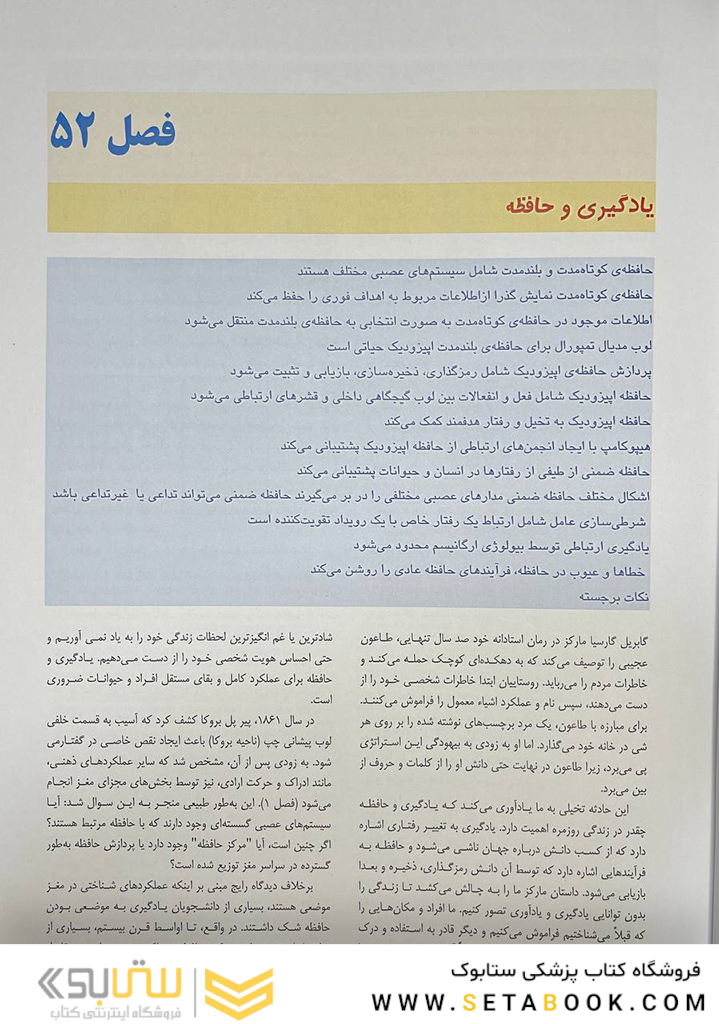 فصل ۵۲
یادگیری و حافظه
حافظه‌ی کوتاه‌مدت و بلندمدت شامل سیستم‌های عصبی مختلف هستند
حافظه‌ی کوتاه‌مدت نمایش گذرا ازاطلاعات مربوط به اهداف فوری را حفظ می‌کند
اطلاعات موجود در حافظه‌ی کوتاه‌مدت به صورت انتخابی به حافظه‌ی بلندمدت منتقل می‌شود
لوب مدیال تمپورال برای حافظه‌ی بلندمدت اپیزودیک حیاتی است
پردازش حافظه‌ی اپیزودیک شامل رمزگذاری، ذخیره‌سازی، بازیابی و تثبیت می‌شود
حافظه اپیزودیک شامل فعل و انفعالات بین لوب گیجگاهی داخلی و قشرهای ارتباطی می‌شود
حافظه اپیزودیک به تخیل و رفتار هدفمند کمک می‌کند
هیپوکامپ با ایجاد انجمن‌های ارتباطی از حافظه اپیزودیک پشتیبانی می‌کند
حافظه ضمنی از طیفی از رفتارها در انسان و حیوانات پشتیبانی می‌کند
اشکال مختلف حافظه ضمنی مدارهای عصبی مختلفی را در بر می‌گیرند حافظه ضمنی می‌تواند تداعی یا غیرتداعی باشد
شرطی‌سازی عامل شامل ارتباط یک رفتار خاص با یک رویداد تقویت‌کننده است
یادگیری ارتباطی توسط بیولوژی ارگانیسم محدود می‌شود
خطاها و عیوب در حافظه، فرآیندهای حافظه عادی را روشن می‌کند
نکات برجسته
گابریل گارسیا مارکز در رمان استادانه خود صد سال تنهایی، طاعون
عجیبی را توصیف می‌کند که به دهکده‌ای کوچک حمله می‌کند و
خاطرات مردم را می‌رباید. روستاییان ابتدا خاطرات شخصی خود را از
دست می‌دهند، سپس نام و عملکرد اشیاء معمول را فراموش می‌کنند.
برای مبارزه با طاعون، یک مرد برچسب‌های نوشته شده را بر روی هر
شی در خانه خود می‌گذارد. اما او به زودی به بیهودگی این استراتژی
پی می‌برد، زیرا طاعون در نهایت حتی دانش او را از کلمات و حروف از
بین می‌برد.
این حادثه تخیلی به ما یادآوری می‌کند که یادگیری و حافظه
چقدر در زندگی روزمره اهمیت دارد. یادگیری به تغییر رفتاری اشاره
دارد که از کسب دانش درباره جهان ناشی می‌شود و حافظه به
فرآیندهایی اشاره دارد که توسط آن دانش رمزگذاری، ذخیره و بعدا
بازیابی می‌شود. داستان مارکز ما را به چالش می‌کشد تا زندگی را
بدون توانایی یادگیری و یادآوری تصور کنیم. ما افراد و مکان‌هایی را
که قبلاً می‌شناختیم فراموش می‌کنیم و دیگر قادر به استفاده و درک
شادترین یا غم انگیزترین لحظات زندگی خود را به یاد نمی آوریم و
حتی احساس هویت شخصی خود را از دست می‌دهیم. یادگیری و
حافظه برای عملکرد کامل و بقای مستقل افراد و حیوانات ضروری
است.
در سال ۱۸۶۱، پیر پل بروکا کشف کرد که آسیب به قسمت خلفی
لوب پیشانی چپ (ناحیه بروکا) باعث ایجاد نقص خاصی در گفتارمی
شود. به زودی پس از آن، مشخص شد که سایر عملکردهای ذهنی،
مانند ادراک و حرکت ارادی، نیز توسط بخش‌های مجزای مغز انجام
می‌شود (فصل ۱). این به‌طور طبیعی منجر به این سوال شد: آیا
سیستم‌های عصبی گسسته‌ای وجود دارند که با حافظه مرتبط هستند؟
اگر چنین است، آیا "مرکز حافظه" وجود دارد یا پردازش حافظه به‌طور
گسترده در سراسر مغز توزیع شده است؟
برخلاف دیدگاه رایج مبنی بر اینکه عملکردهای شناختی در مغز
موضعی هستند، بسیاری از دانشجویان یادگیری به موضعی بودن
حافظه شک داشتند. در واقع، تا اواسط قرن بیستم، بسیاری از
فروشگاه کتاب پزشکی ستابوک
WWW.SETABOOK.COM
ستابوک
فروشگاه اینترنتی کتاب